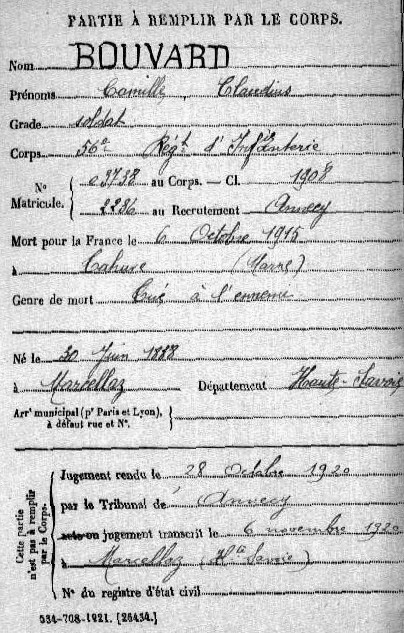 PARTIE À REMPLIR PAR LE CORPS.
Nom BOUVARD
Prénoms Camille Claudius
Grade soldat
Corps 56e Régt d'Infanterie
N° Matricule. { 03738 au Corps. — Cl. 1908
2286 au Recrutement Annecy
Mort pour la France le 6 Octobre 1915
à Tahure (Marne)
Genre de mort Tué à l'ennemi
Né le 30 Juin 1888
à Marcellaz Département Haute-Savoie
Arrt municipal (pr Paris et Lyon), à défaut rue et N°.
Cette partie n'est pas à remplir par le Corps.
Jugement rendu le 28 Octobre 1920
par le Tribunal de Annecy
acte ou jugement transcrit le 6 novembre 1920
à Marcellaz (Hte Savoie)
N° du registre d'état civil
534-708-1921. [26434.]